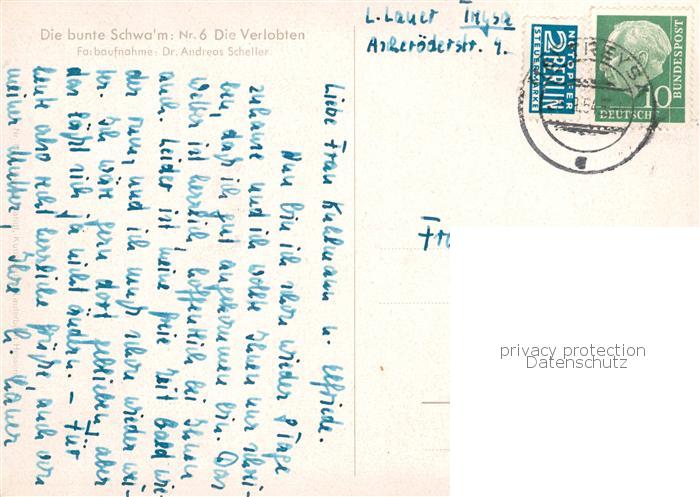 Die bunte Schwa'm: Nr. 6 Die Verlobten
Farbaufnahme: Dr. Andreas Scheller
L. Lauer Treysa
Ascheröderstr. 4.
NOTOPFER
2 BERLIN
STEUERMARKE
DEUTSCHE BUNDESPOST
10
TREYSA
54
a
Fr
privacy protection
Datenschutz
Liebe Frau Kuhlmann u. Elfride.
Nun bin ich schon wieder 8 Tage
zuhause und ich wollte Ihnen nur schrei-
ben, daß ich gut angekommen bin. Das
Wetter ist herrlich hoffentlich bei Ihnen
auch. Leider ist meine freie Zeit bald wie-
der rum, und ich muß schon wieder
fort. Ich wäre gern dort geblieben, aber
das läßt sich ja nicht ändern. – Für
heute also recht herzliche Grüße, auch von
meiner Mutter, Ihre L. Lauer